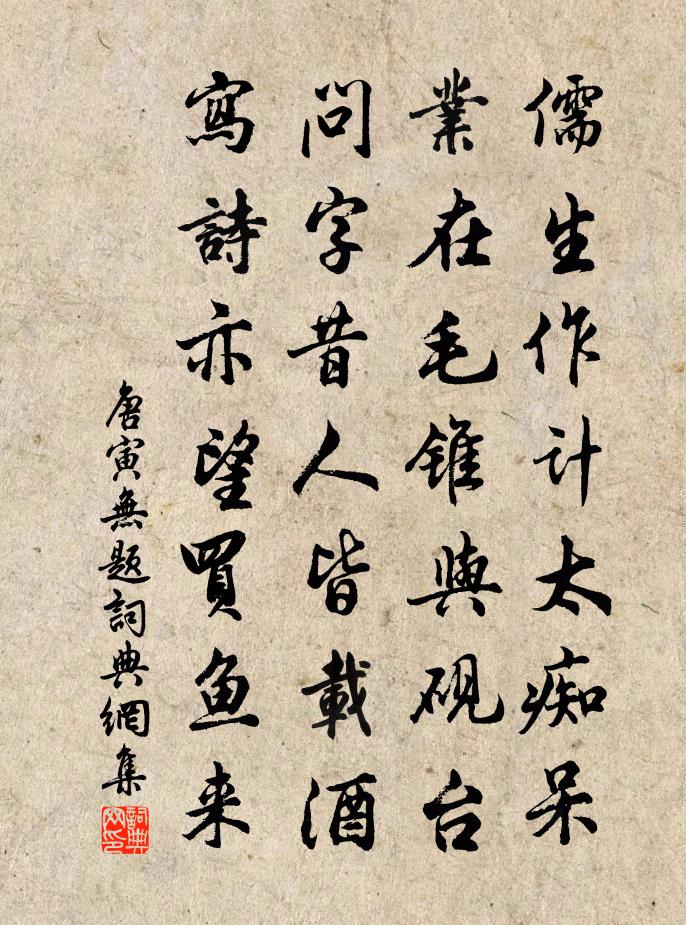 儒生作计太痴呆
業在毛錐與硯台
問字昔人皆載酒
寫詩亦望買鱼来
唐寅無題詞典網集
詞典网印